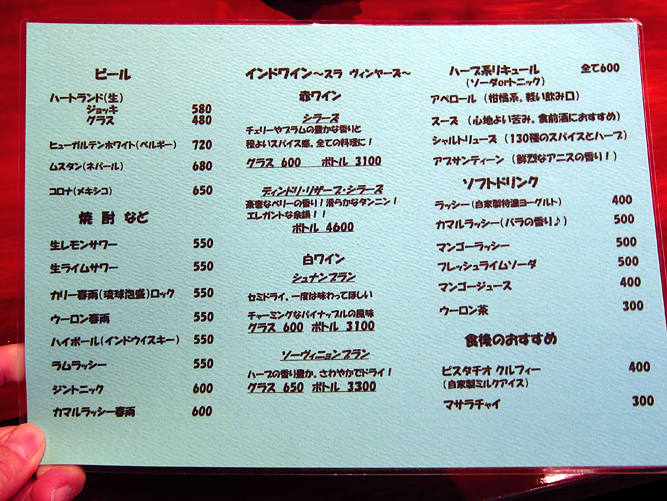 ビール
ハートランド(生)
ジョッキ 580
グラス 480
ヒューガルデンホワイト(ベルギー) 720
ムスタン(ネパール) 680
コロナ(メキシコ) 650
焼酎 など
生レモンサワー 550
生ライムサワー 550
カリー春雨(琉球泡盛)ロック 550
ウーロン春雨 550
ハイボール(インドウイスキー) 550
ラムラッシー 550
ジントニック 600
カマルラッシー春雨 600
インドワイン～スラ ヴィンヤーズ～
赤ワイン
シラーズ
チェリーやプラムの豊かな香りと
程よいスパイス感、全ての料理に!
グラス 600 ボトル 3100
ディンドリ・リザーブ・シラーズ
豪奢なベリーの香り!滑らかなタンニン!
エレガントな余韻!!
ボトル 4600
白ワイン
シュナンブラン
セミドライ、一度は味わってほしい
チャーミングなパイナップルの風味
グラス 600 ボトル 3100
ソーヴィニョンブラン
ハーブの香り豊か、さわやかでドライ!
グラス 650 ボトル 3300
ハーブ系リキュール 全て600
(ソーダorトニック)
アペロール (柑橘系,軽い飲み口)
スーズ (心地よい苦み、食前酒におすすめ)
シャルトリューズ (130種のスパイスとハーブ)
アブサンティーン (鮮烈なアニスの香り!)
ソフトドリンク
ラッシー(自家製特濃ヨーグルト) 400
カマルラッシー(バラの香り♪) 500
マンゴーラッシー 500
フレッシュライムソーダ 500
マンゴージュース 400
ウーロン茶 300
食後のおすすめ
ピスタチオ クルフィー 400
(自家製ミルクアイス)
マサラチャイ 300